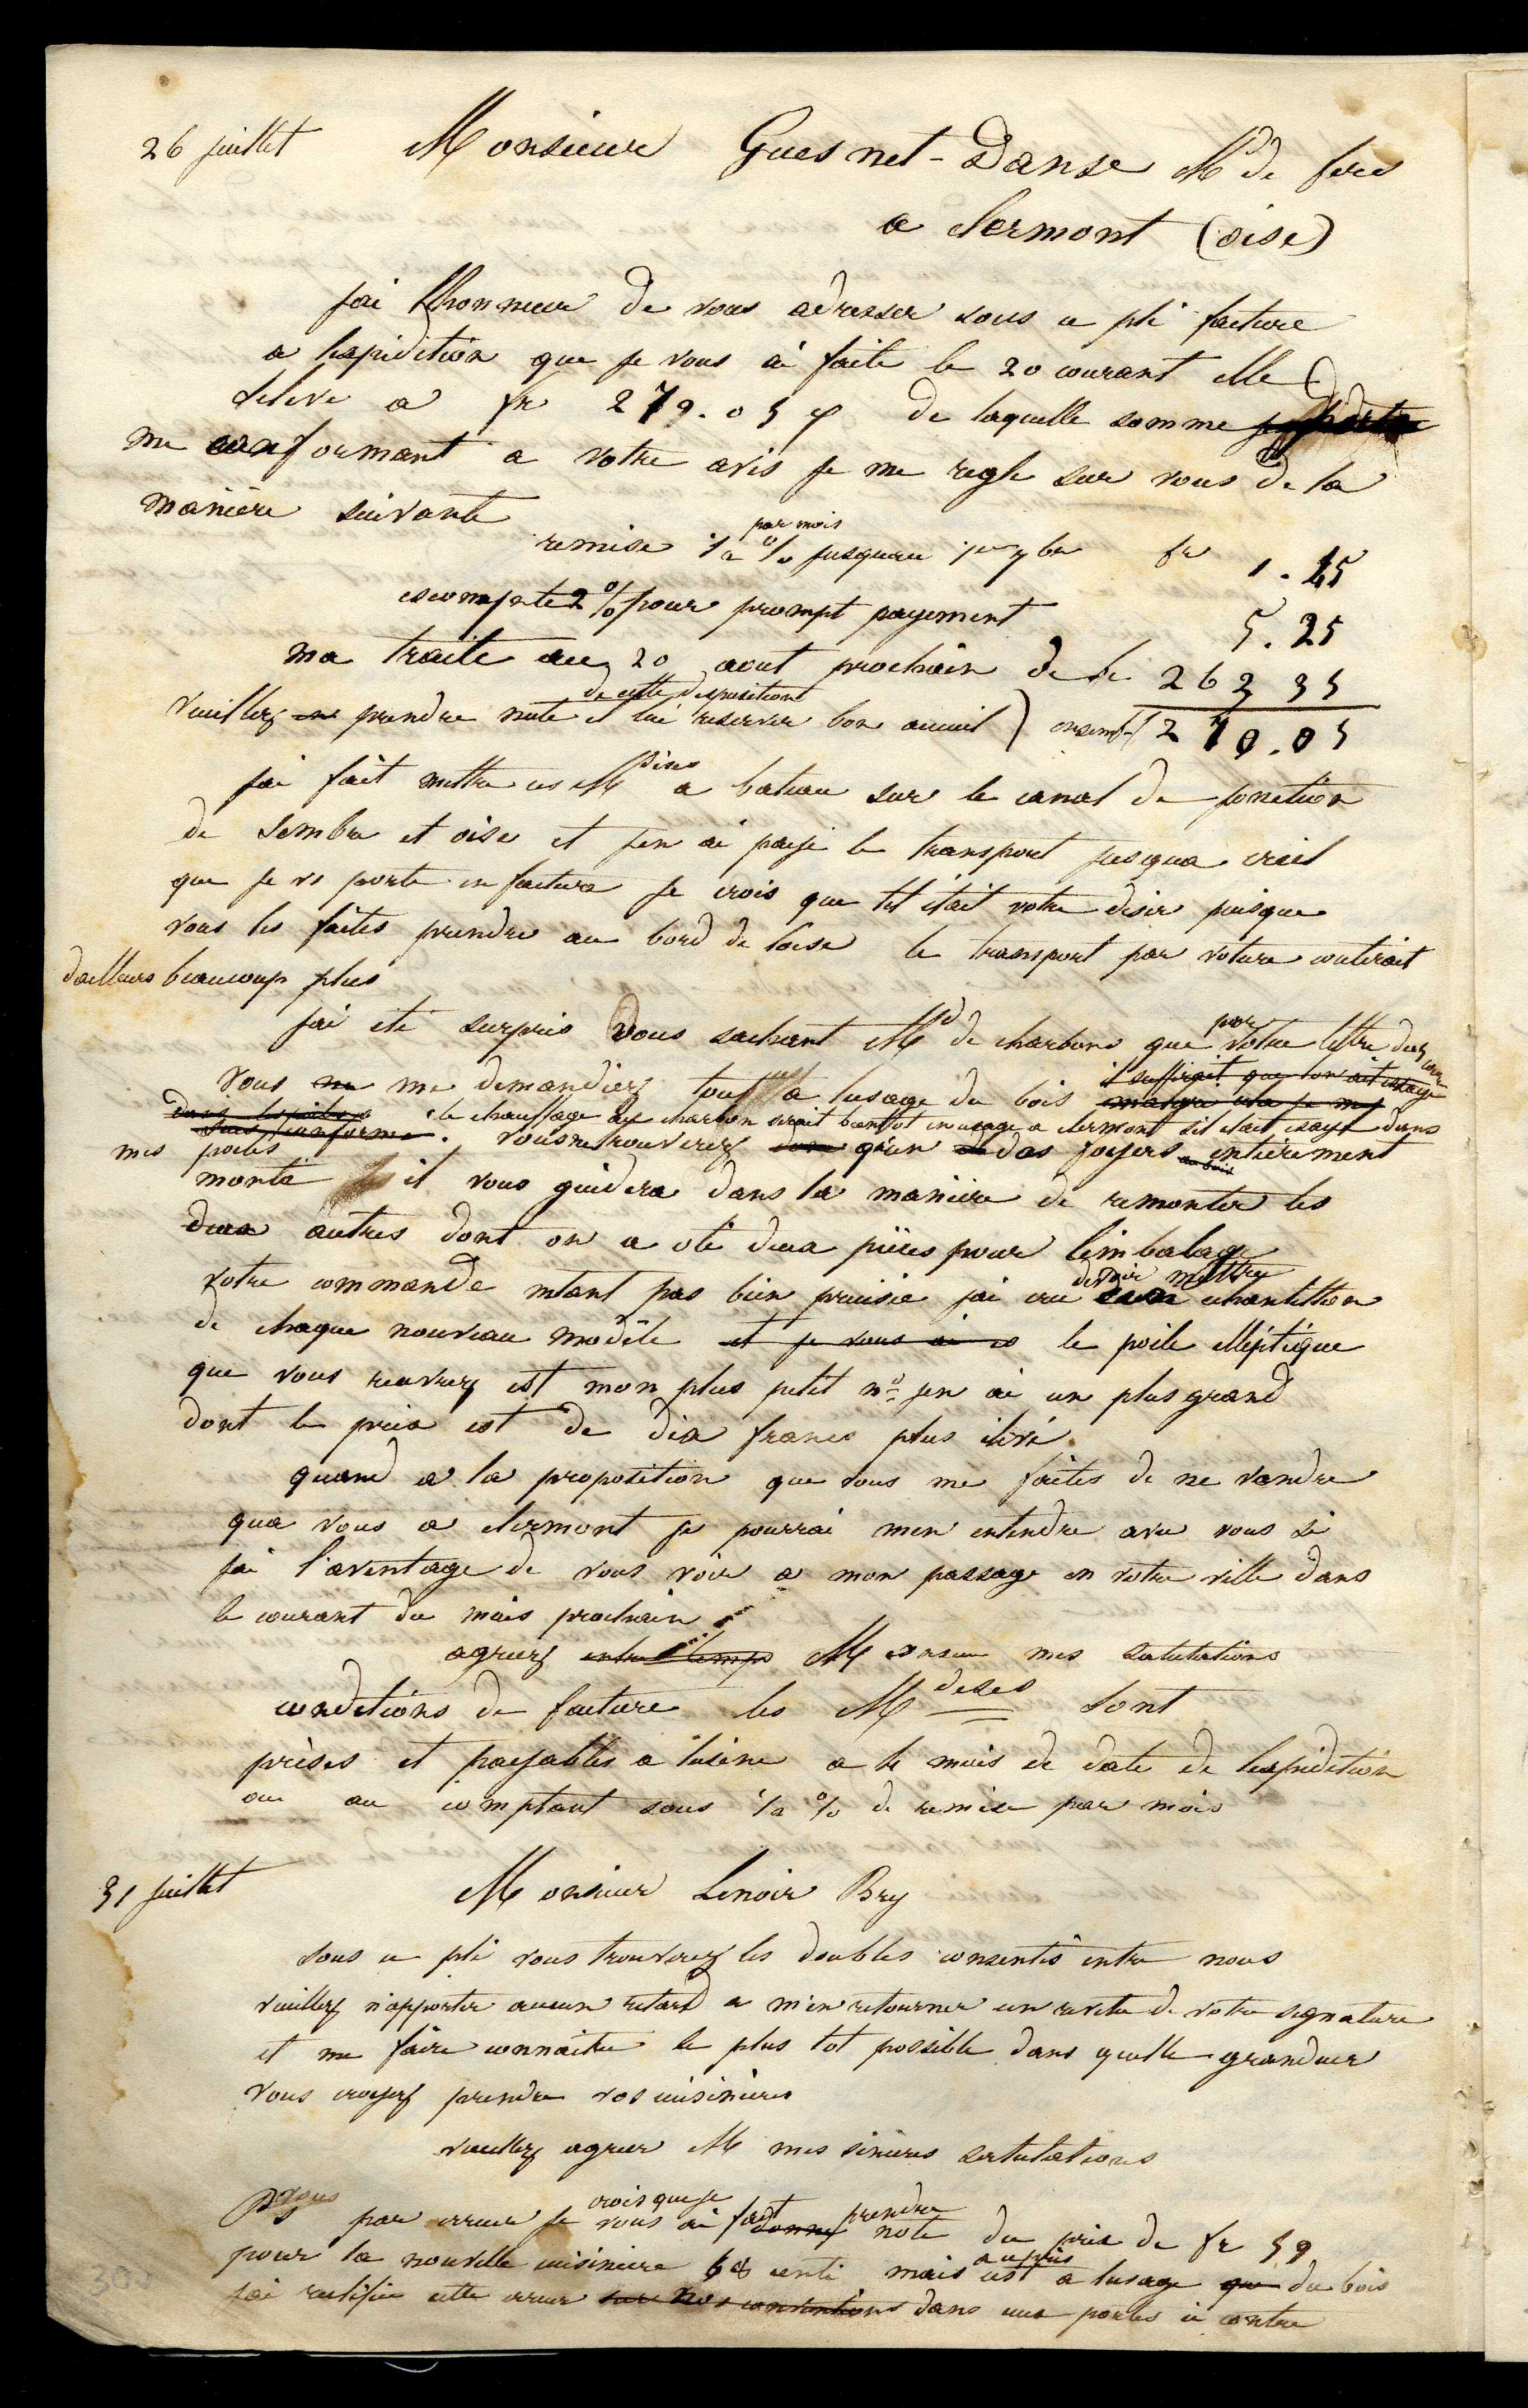 26 juillet Monsieur Guesnet-Danse Md de fers
a clermont (oise)
jai lhonneur de vous adresser sous ce pli facture
a lexpedition que je vous ai faite le 20 courant elle
seleve a fr 270.05 de laquelle somme
me conformant a votre avis je me regle sur vous de la
manière suivante
par mois
remise 1/2 % jusquau 7bre fr 1.45
escompte 2 % pour prompt payement 5.25
ma traite au 20 aout prochain de fr 263 35
de cette disposition
veuillez en prendre note et lui reserver bon accueil ) ensemb 270.05
jai fait mettre ces Mdises a bateau sur le canal de jonction
de Sambre et oise et jen ai payé le transport jusqua creil
que je vs porte en facture je crois que tel était votre desir puisque
vous les faites prendre au bord de loise le transport par voiture couterait
dailleurs beaucoup plus
jai eté surpris vous sachant Md de charbons que par votre lettre du
vous ne me demandiez tous a lusage du bois il suffirait que lon ait essayé
malgré cela je me
le chauffage au charbon serait bientot en usage a clermont sil etait essayé dans
mes poeles vous ne trouverez qun des foyers au bois entièrement
monté il vous guidera dans la manière de remonter les
deux autres dont on a oté deux pièces pour lembalage
votre commande nétant pas bien précisée jai cru devoir mettre echantillon
de chaque nouveau modèle et je vous ai le poile elleptique
que vous recevrez est mon plus petit no jen ai un plus grand
dont le prix est de dix francs plus élévé
quand a la proposition que vous me faites de ne vendre
qua vous a clermont je pourrai men entendre avec vous si
jai l'aventage de vous voir a mon passage en votre ville dans
le courant du mois prochain
agreez entre temps Monsieur mes salutations
conditions de facture les Mdises sont
prises et payables a lusine a mois de date de lexpédition
ou au comptant sous 1/2 % de remise par mois
31 juillet Monsieur Lenoir Bry
sous ce pli vous trouverez les doubles consentis entre nous
veuillez n'apporter aucun retard a m'en retourner un revetu de votre signature
et me faire connaitre le plus tot possible dans quelle grandeur
vous croyez prendre vos cuisinières
veuillez agreer M mes sincères salutations
Ps par erreur je crois que je vous ai fait donné prendre note du prix de fr 59
pour la nouvelle cuisiniere 68 centi mais ce prix est a lusage que du bois
jai rectifié cette erreur sur nos conventions dans